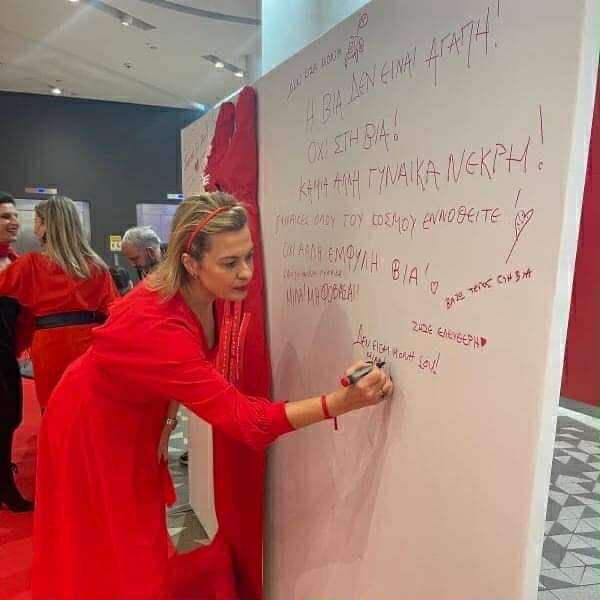 ΔΕΝ ΕΙΣΑΙ ΜΟΝΗ
Η ΒΙΑ ΔΕΝ ΕΙΝΑΙ ΑΓΑΠΗ!
ΟΧΙ ΣΤΗ ΒΙΑ!
ΚΑΜΙΑ ΑΛΛΗ ΓΥΝΑΙΚΑ ΝΕΚΡΗ!
ΓΥΝΑΙΚΕΣ ΟΛΟΥ ΤΟΥ ΚΟΣΜΟΥ ΕΝΝΟΘΕΙΤΕ...!
ΟΧΙ ΑΛΛΗ ΕΜΦΥΛΗ ΒΙΑ!
ΜΙΛΑ! ΜΗ ΦΟΒΑΣΑΙ!
ΒΑΖΩ ΤΕΛΟΣ ΣΤΗ ΒΙΑ
ΖΗΣΕ ΕΛΕΥΘΕΡΗ
ΔΕΝ ΕΙΣΑΙ ΜΟΝΗ ΣΟΥ!
ΜΙΛΑ